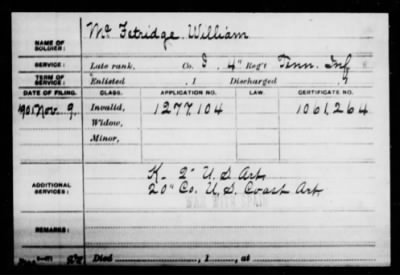 NAME OF SOLDIER: Mc Fetridge William
SERVICE: Late rank, Co. I, 4" Reg't Tenn. Inf
TERM OF SERVICE: Enlisted , 1 Discharged
DATE OF FILING. CLASS. APPLICATION NO. LAW. CERTIFICATE NO.
1901 Nov. 9. Invalid, 1277,104 1061,264
Widow,
Minor,
ADDITIONAL SERVICES: K- 2" U.S. Art.
20" Co. U.S. Coast Art.
REMARKS:
Died , 1 , at